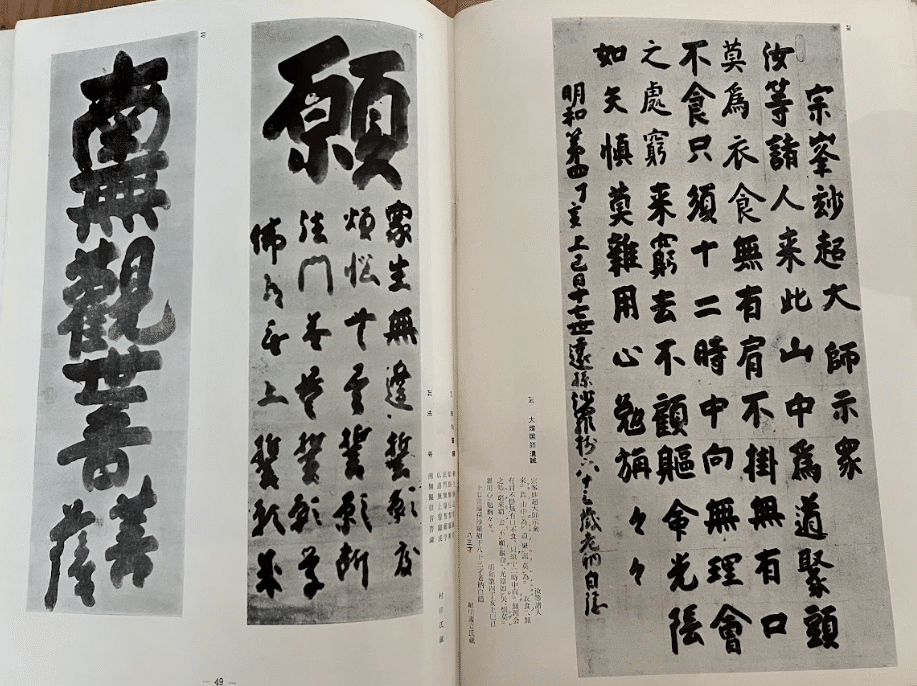 宗峯玅超大師示衆
汝等諸人来此山中為道聚頭
莫為衣食無有肩不掛無有口
不食只須十二時中向無理會
之處窮来窮去不顧軀命光陰
如矢慎莫雜用心勉旃々々
明和第四丁亥上巳日十七世遠孫沙羅樹八十三歳老衲白隠
大燈国師遺誡
八三才
願
衆生無邊誓願度
煩悩無盡誓願断
法門無量誓願学
佛道無上誓願成
南無觀世音菩薩
— 49 —